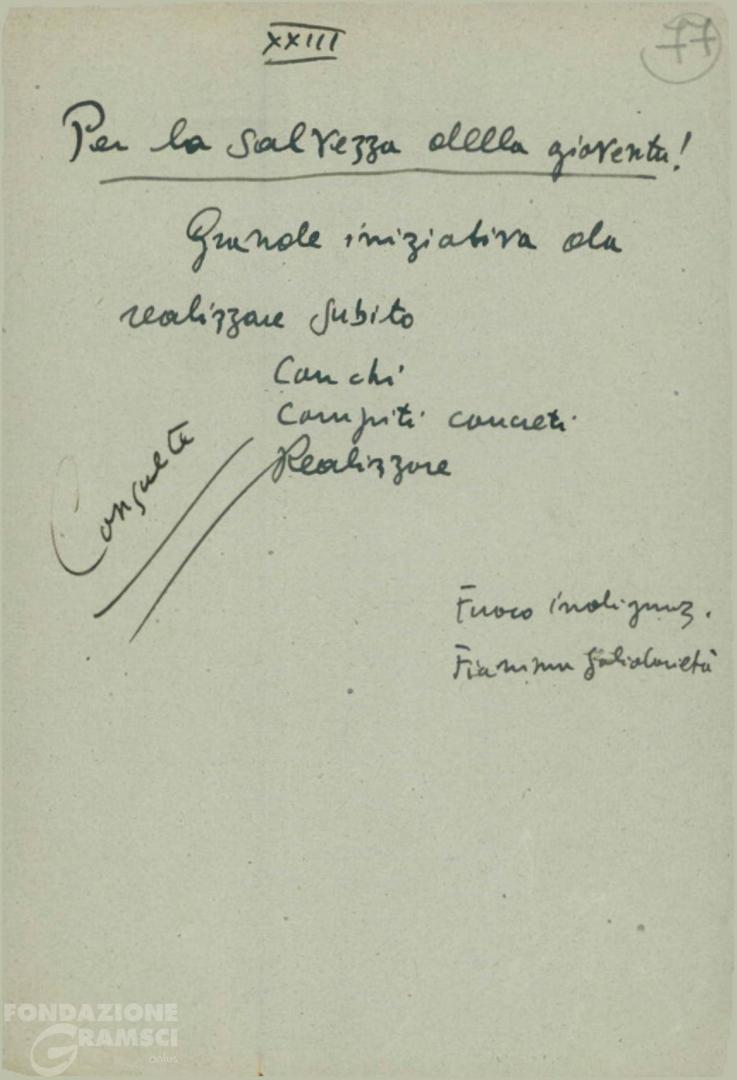 XXIII
77
Per la salvezza della gioventu!
Grande iniziativa da
realizzare subito
Con chi
Compiti concreti
Realizzare
Consulte
Fuoco indignaz.
Fiamma solidarietà
FONDAZIONE
GRAMSCI
onlus